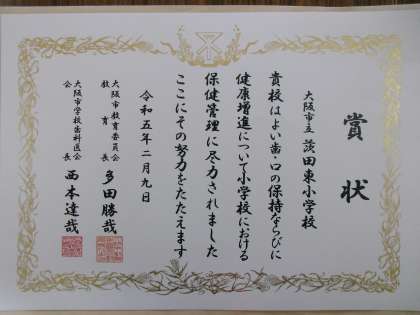 賞状
大阪市立 茨田東小学校
貴校はよい歯・口の保持ならびに
健康増進について小学校における
保健管理に尽力されました
ここにその努力をたたえます
令和五年二月九日
大阪市教育委員会
教育長 多田勝哉
大阪市学校歯科医会
会長 西本達哉